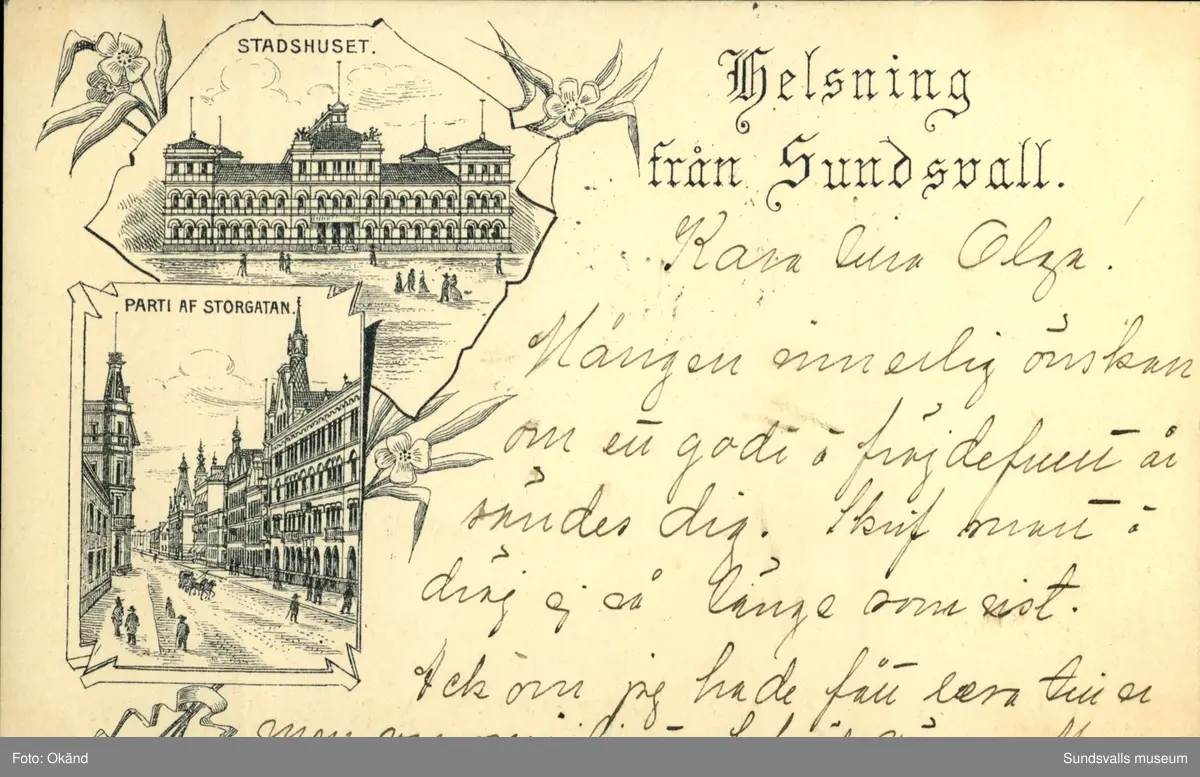 STADSHUSET.
Helsning
från Sundsvall.
PARTI AF STORGATAN.
Kära lilla Olga!
Mången innerlig önskan
om ett godt o fröjdefullt år
sändes dig. Skrif snart o
dröj ej så länge som sist.
Ack om jag hade fått
men
Foto: Okänd
Sundsvalls museum